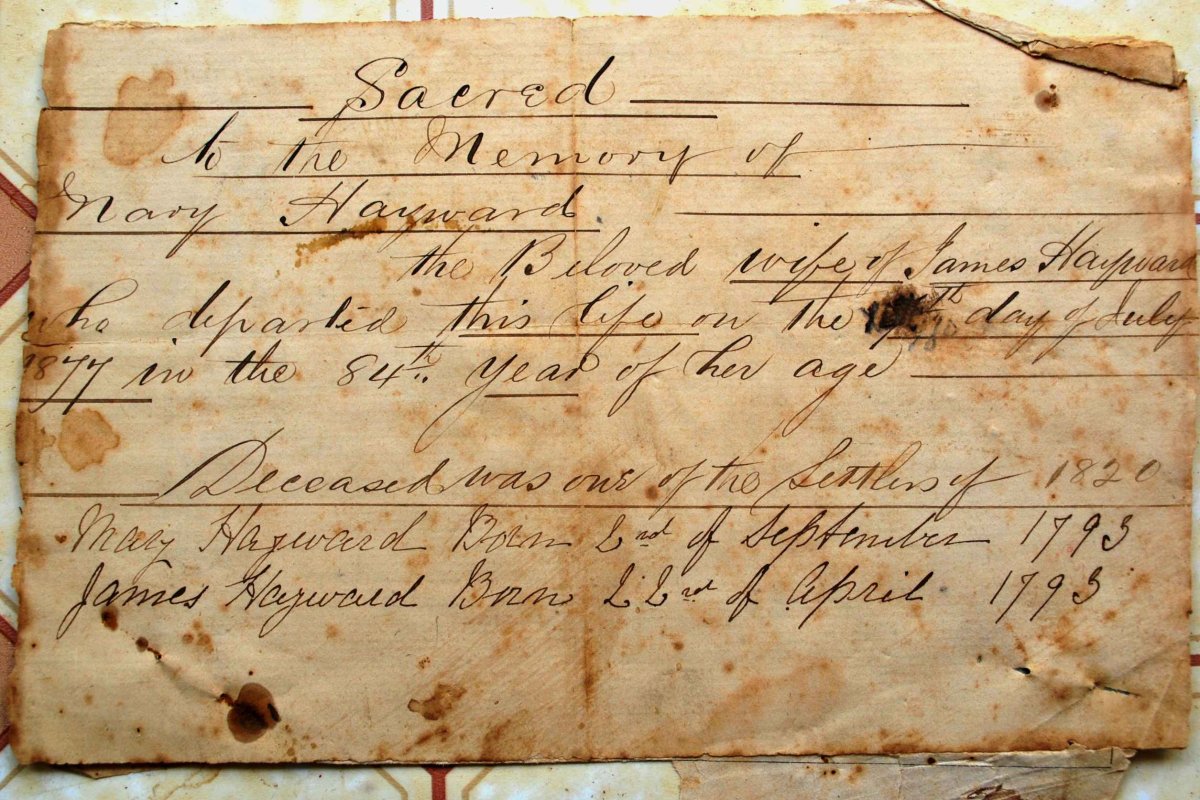 Sacred
to the Memory of
Mary Hayward
the Beloved wife of James Hayward
who departed this life on the th day of July
1877 in the 84th year of her age
Deceased was one of the Settlers of 1820
Mary Hayward Born 2nd of September 1793
James Hayward Born 22nd of April 1793